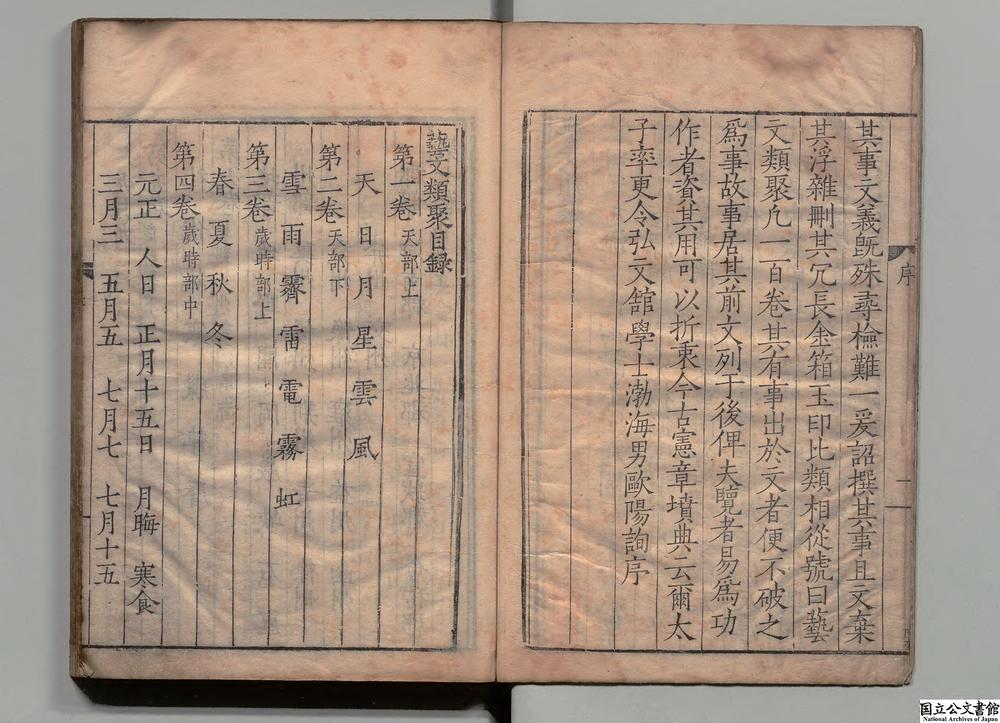 其事文義旣殊尋檢難一爰詔撰其事且文棄
其浮雜刪其冗長金箱玉印比類相從號曰藝
文類聚凡一百卷其有事出於文者便不破之
爲事故事居其前文列于後俾夫覽者易爲功
作者資其用可以折衷今古憲章墳典云爾太
子率更令弘文館學士渤海男歐陽詢序
序
一
藝文類聚目録
第一卷 天部上
天 日 月 星 雲 風
第二卷 天部下
雪 雨 霽 雷 電 霧 虹
第三卷 歲時部上
春 夏 秋 冬
第四卷 歲時部中
元正 人日 正月十五日 月晦 寒食
三月三 五月五 七月七 七月十五
国立公文書館
National Archives of Japan